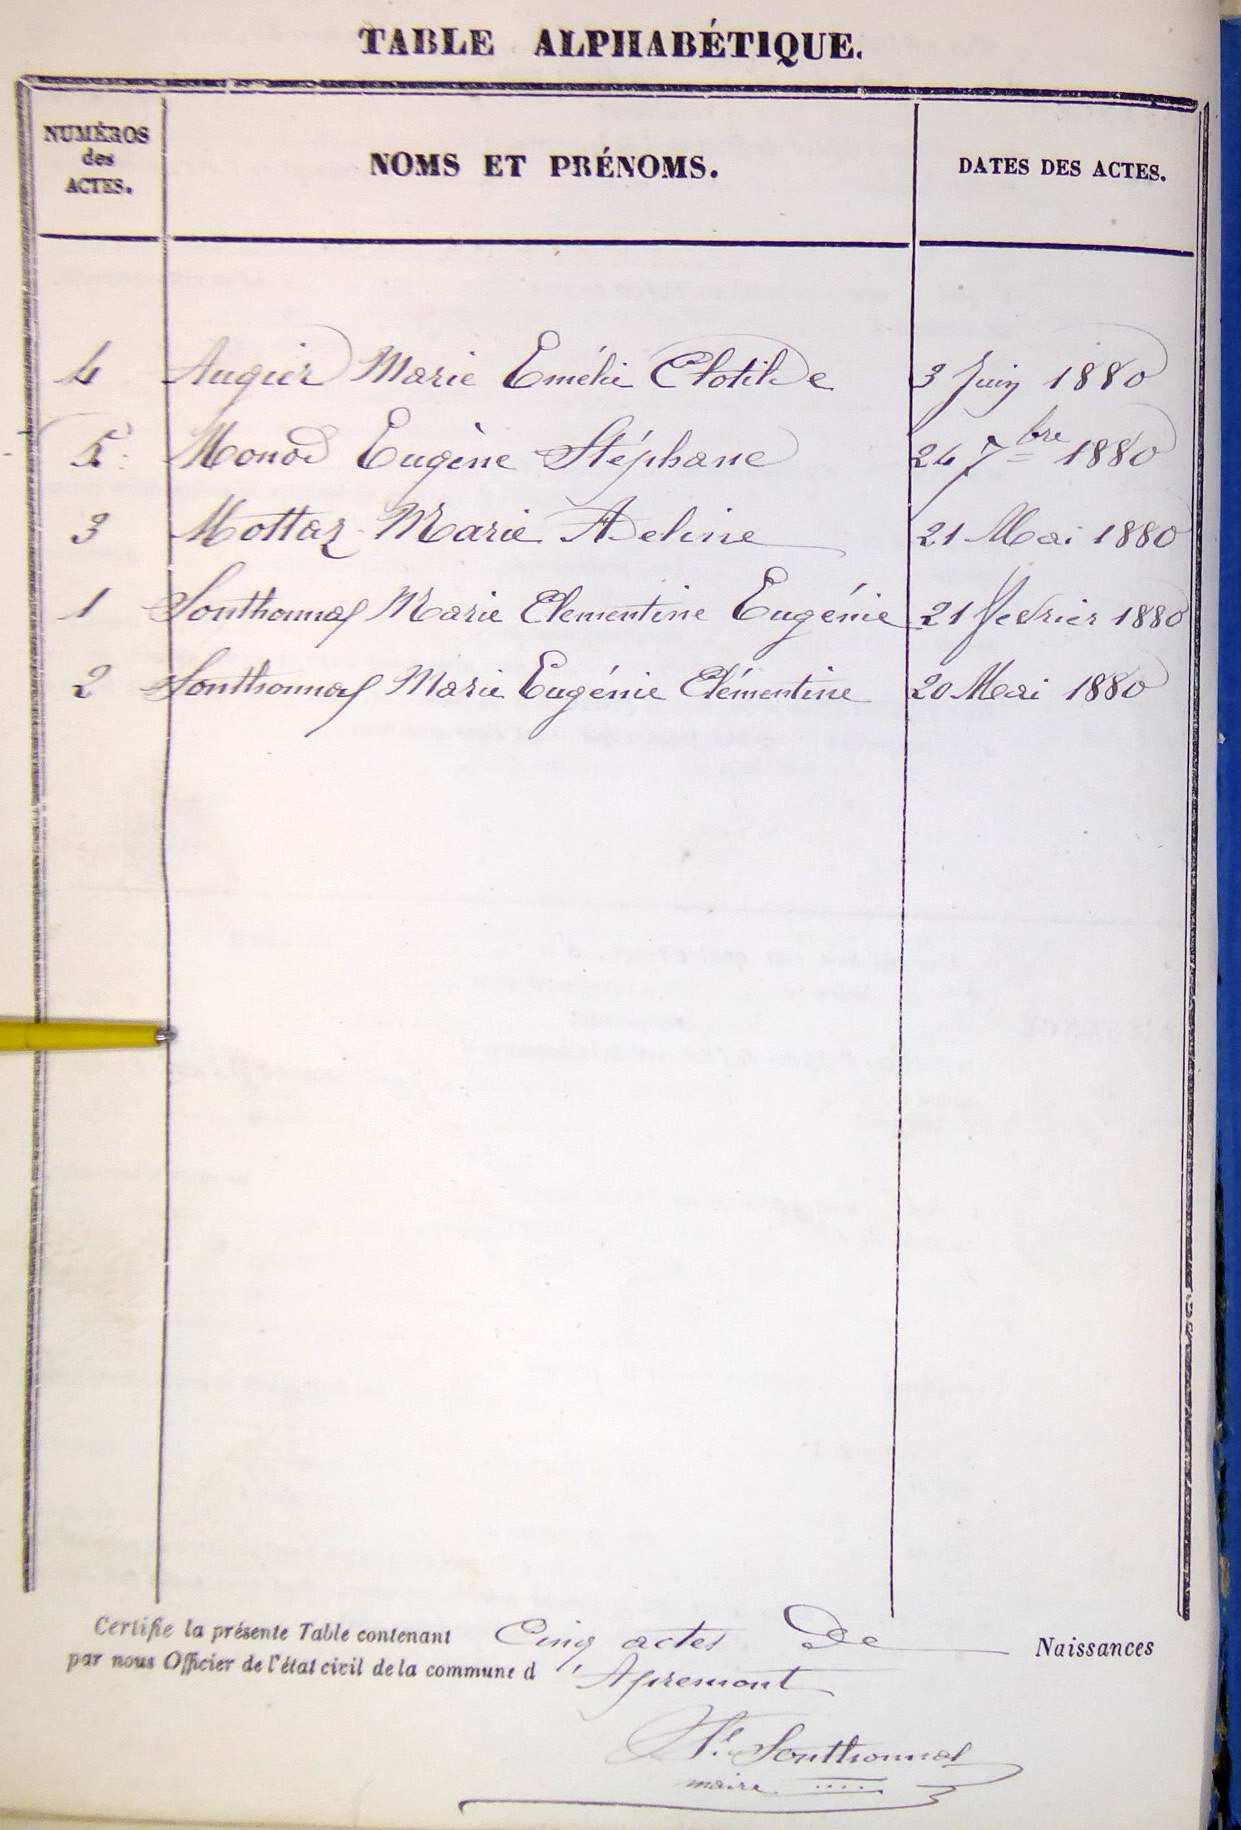 TABLE ALPHABÉTIQUE.
NUMÉROS
des
ACTES.
NOMS ET PRÉNOMS.
DATES DES ACTES.
4 Augier Marie Emélie Clotilde 3 Juin 1880
5 Monod Eugène Stéphane 24 7bre 1880
3 Mottaz Marie Adeline 21 Mai 1880
1 Sonthonnas Marie Clementine Eugénie 21 fevrier 1880
2 Sonthonnas Marie Eugénie Clémentine 20 Mai 1880
Certifie la présente Table contenant Cinq actes De Naissances
par nous Officier de l'état civil de la commune d'Apremont
Sonthonnas
maire